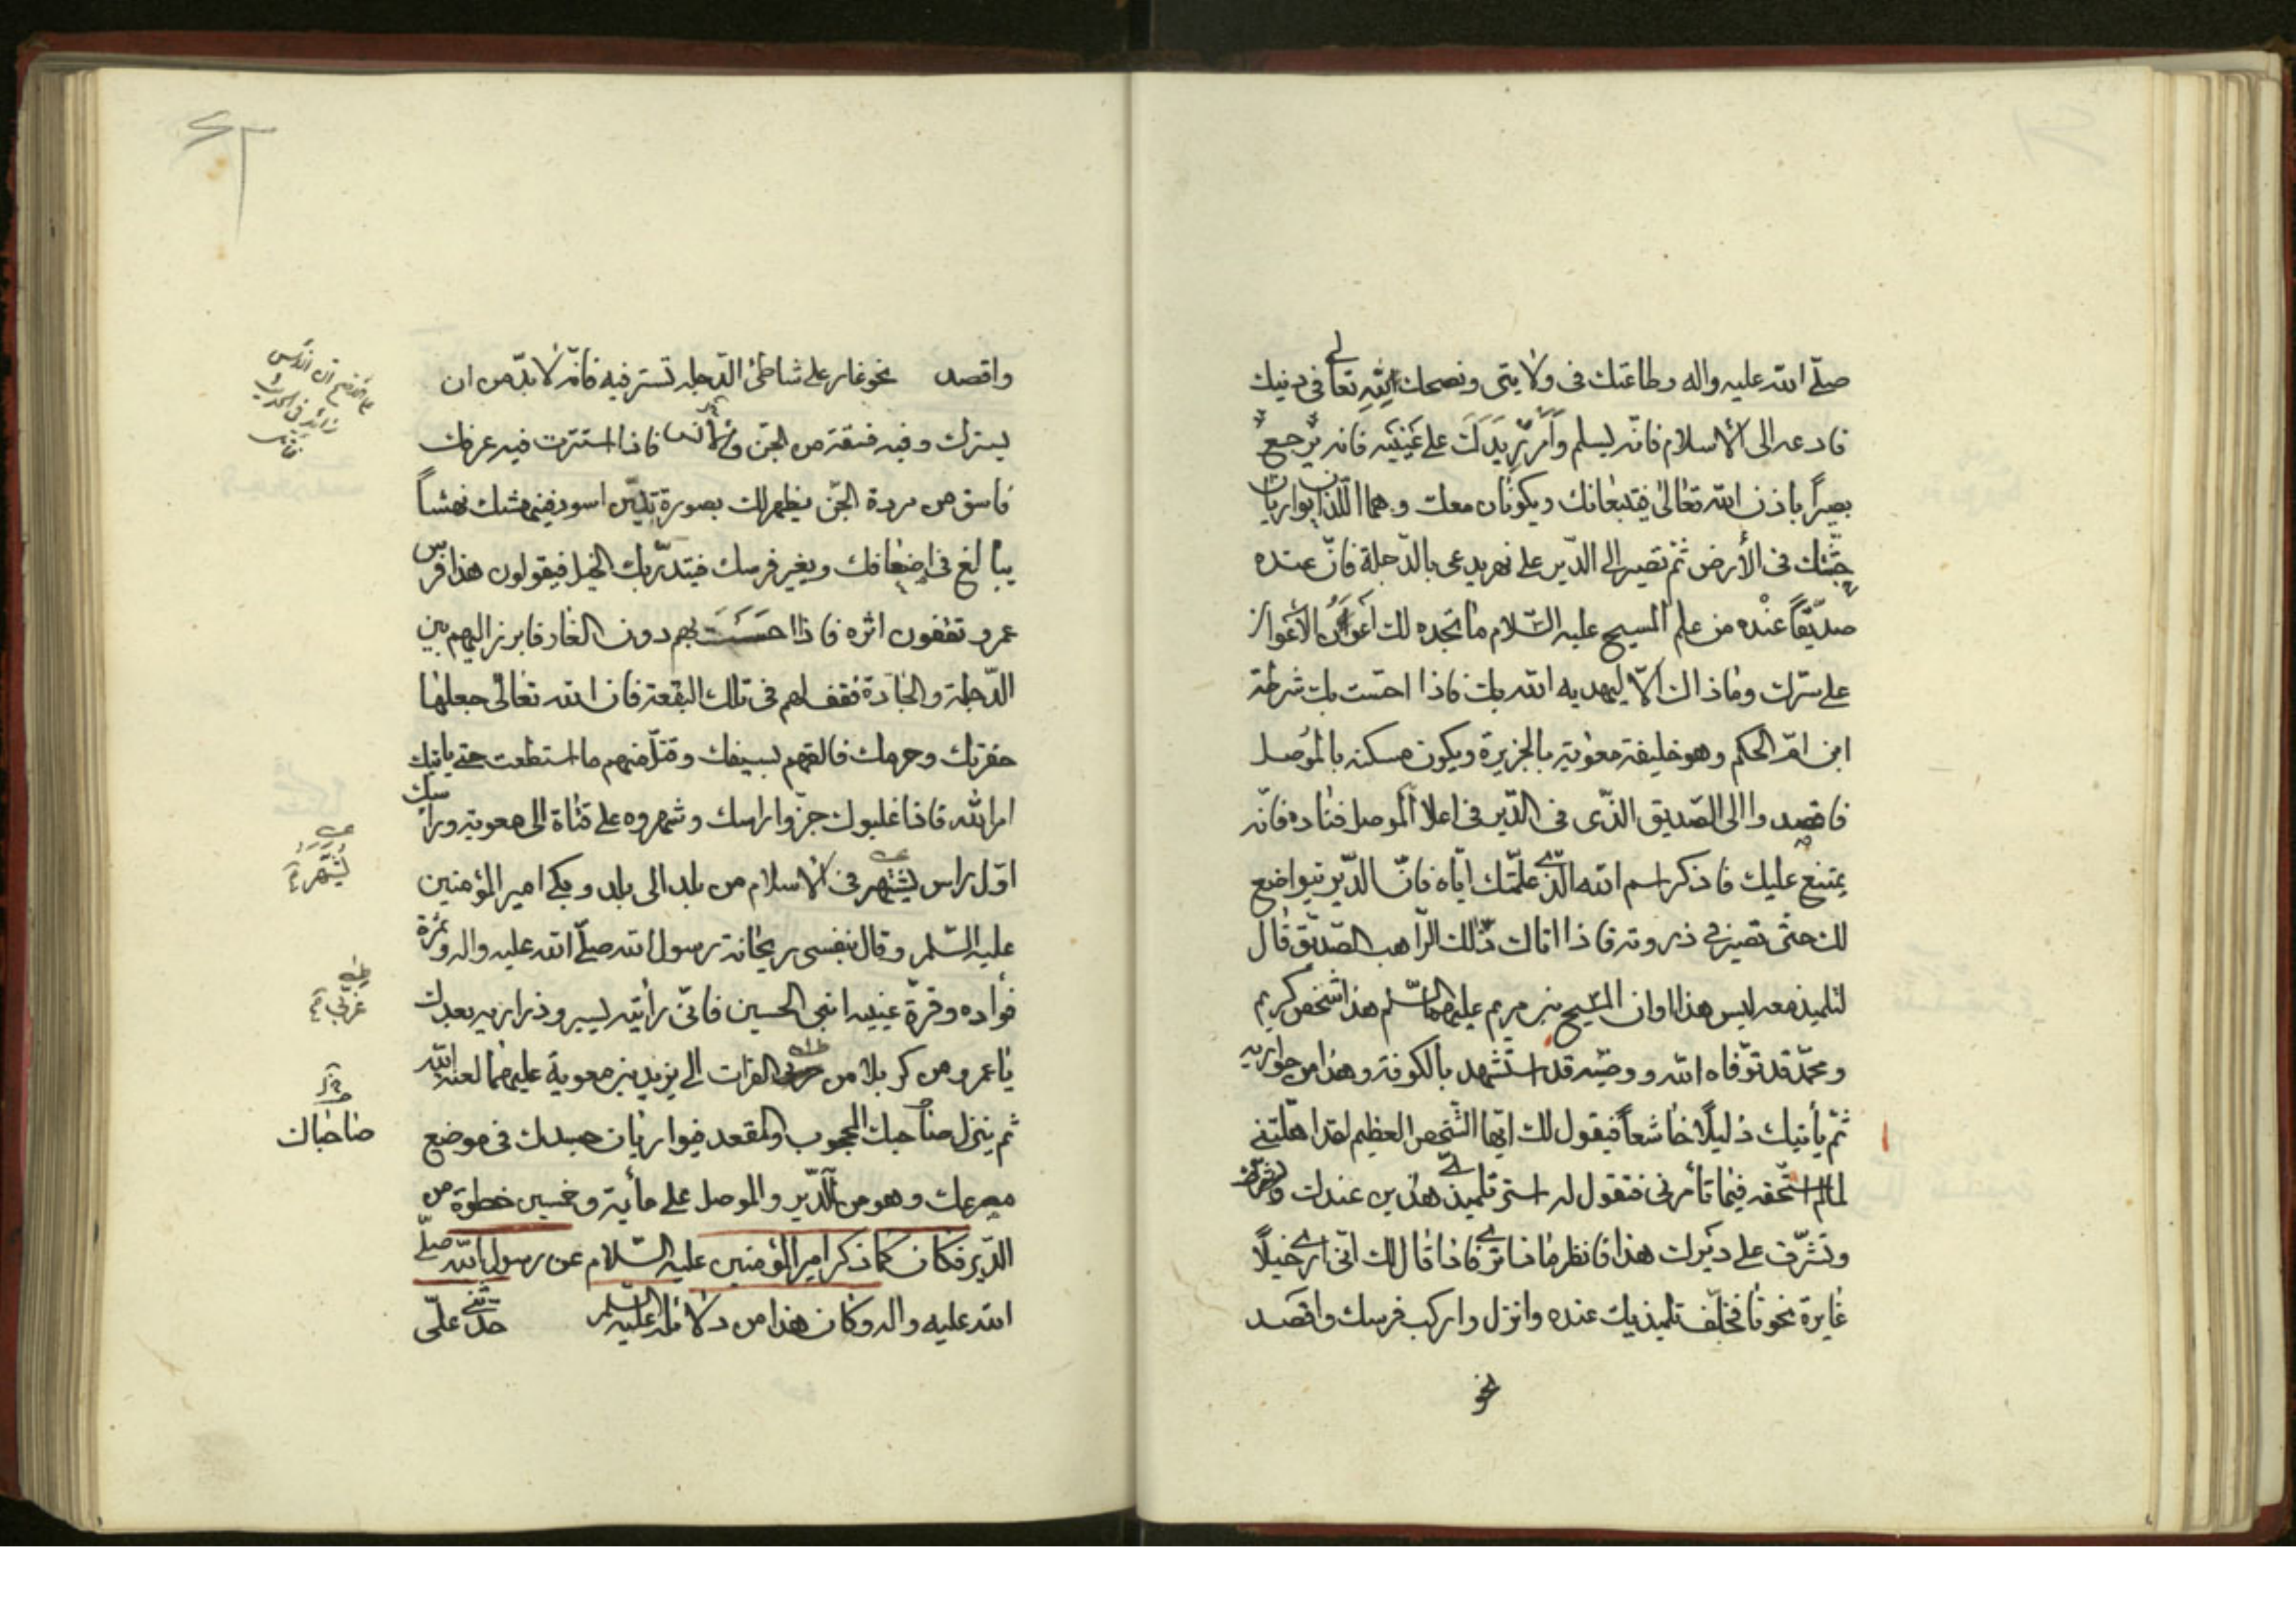 صلّى الله عليه واله وطاعتك فى ولايتى ونصحك لله تعالى فى دينك
فادعه الى الاسلام فانّه يسلم وأمرر يدك على عينيه فانه يرجع
بصيراً باذن الله تعالى فيتبعانك ويكونان معك وهما اللّذان يواريان
جثّتك فى الأرض ثمّ تصير الى الدّير على نهر يدعى بالدّجلة فانّ عنده
صدّيقاً عنده من علم المسيح عليه السّلام ما تجده لك أعون الأعوان
على سرّك وما ذاك الّا ليهديه الله بك فاذا احسّت بك شرطة
ابن امّ الحكم وهو خليفة معوية بالجزيرة ويكون مسكنه بالموصل
فاقصد الى الصّديق الذّى فى الدّير فى اعلا الموصل فناده فانّه
يمتنع عليك فاذكر اسم الله الذّى علّمتك ايّاه فانّ الدّير يتواضع
لك حتّى تصير فى ذروته فاذا اتاك ذلك الرّاهب الصدّيق قال
لتلميذ معه ليس هذا اوان المسيح بن مريم عليهما السّلم هذا شخص كريم
ومحمّد قد توّفاه الله ووصّيه قد استشهد بالكوفة وهذا من حواريه
ثمّ يأتيك ذليلاً خاشعاً فيقول لك ايّها الشّخص العظيم لقد اهلّتنى
لما لم استحّقه فيما تأمرنى فتقول له استر تلميذى هذين عندك
وتشّرف على ديرك هذا فانظر ماذا ترى فاذا قال لك انّى ارى خيلاً
غايرة نحونا فخلّف تلميذيك عنده وانزل واركب فرسك واقصد
نحو
واقصد نحو غار على شاطئ الدّجله تستر فيه فانّه لا بدّ من ان
يسترك وفيه فسقة من الجنّ والانس فاذا استترت فيه عرفك
فاسق من مردة الجنّ يظهر لك بصورة تنّين اسود فينهشك نهشاً
يبالغ فى اضعافك ويغير فرسك فيتدرّ بك الخيل فيقولون هذا فرس
عمرو تقفون اثره فاذا حسست بهم دون الغار فابرز اليهم بين
الدّجلة والجادة فقف لهم فى تلك البقعة فان الله تعالى جعلها
حفرتك وحرمك فالقهم بسيفك وقتّل منهم ما استطعت حتى ياتيك
امر الله فاذا غلبوك جزّوا راسك وشهروه على قناة الى معوية وراسك
اوّل راس يشتهر فى الاسلام من بلد الى بلد وبكى امير المؤمنين
عليه السّلم وقال بنفسى ريحانة رسول الله صلّى الله عليه واله وثمرة
فؤاده وقرّة عينيه ابنى الحسين فانّى رأيته يسير وذراريه بعدك
يا عمرو من كربلا من الفرات الى يزيد بن معوية عليهما لعنة الله
ثم ينزل صاحبك المحجوب والمقعد فيواريان جسدك فى موضع
مصرعك وهو من الدّير والموصل على مأية وخمسين خطوة من
الدّير فكان كما ذكر امير المؤمنين عليه السّلام عن رسول الله صلّى
الله عليه واله وكان هذا من دلائله عليه السّلم حدّثنى علّى
صاحباك